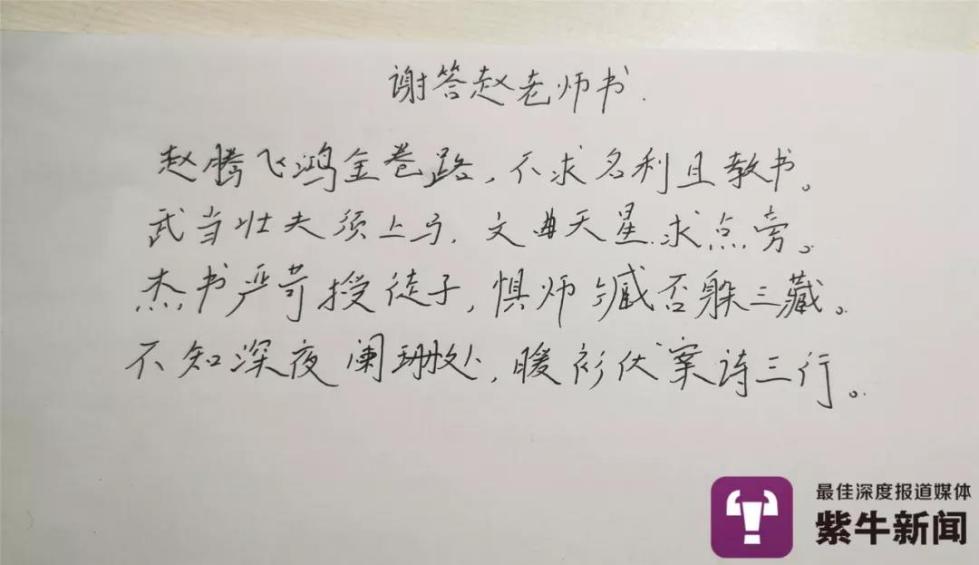 谢答赵老师书.
赵腾飞鸿金卷路,不求名利且教书。
武当壮夫须上马,文曲天星求点旁。
杰书严苛授徒子,惧师臧否躲三藏。
不知深夜阑珊处,暖衫伏案诗三行。
最佳深度报道媒体
紫牛新闻